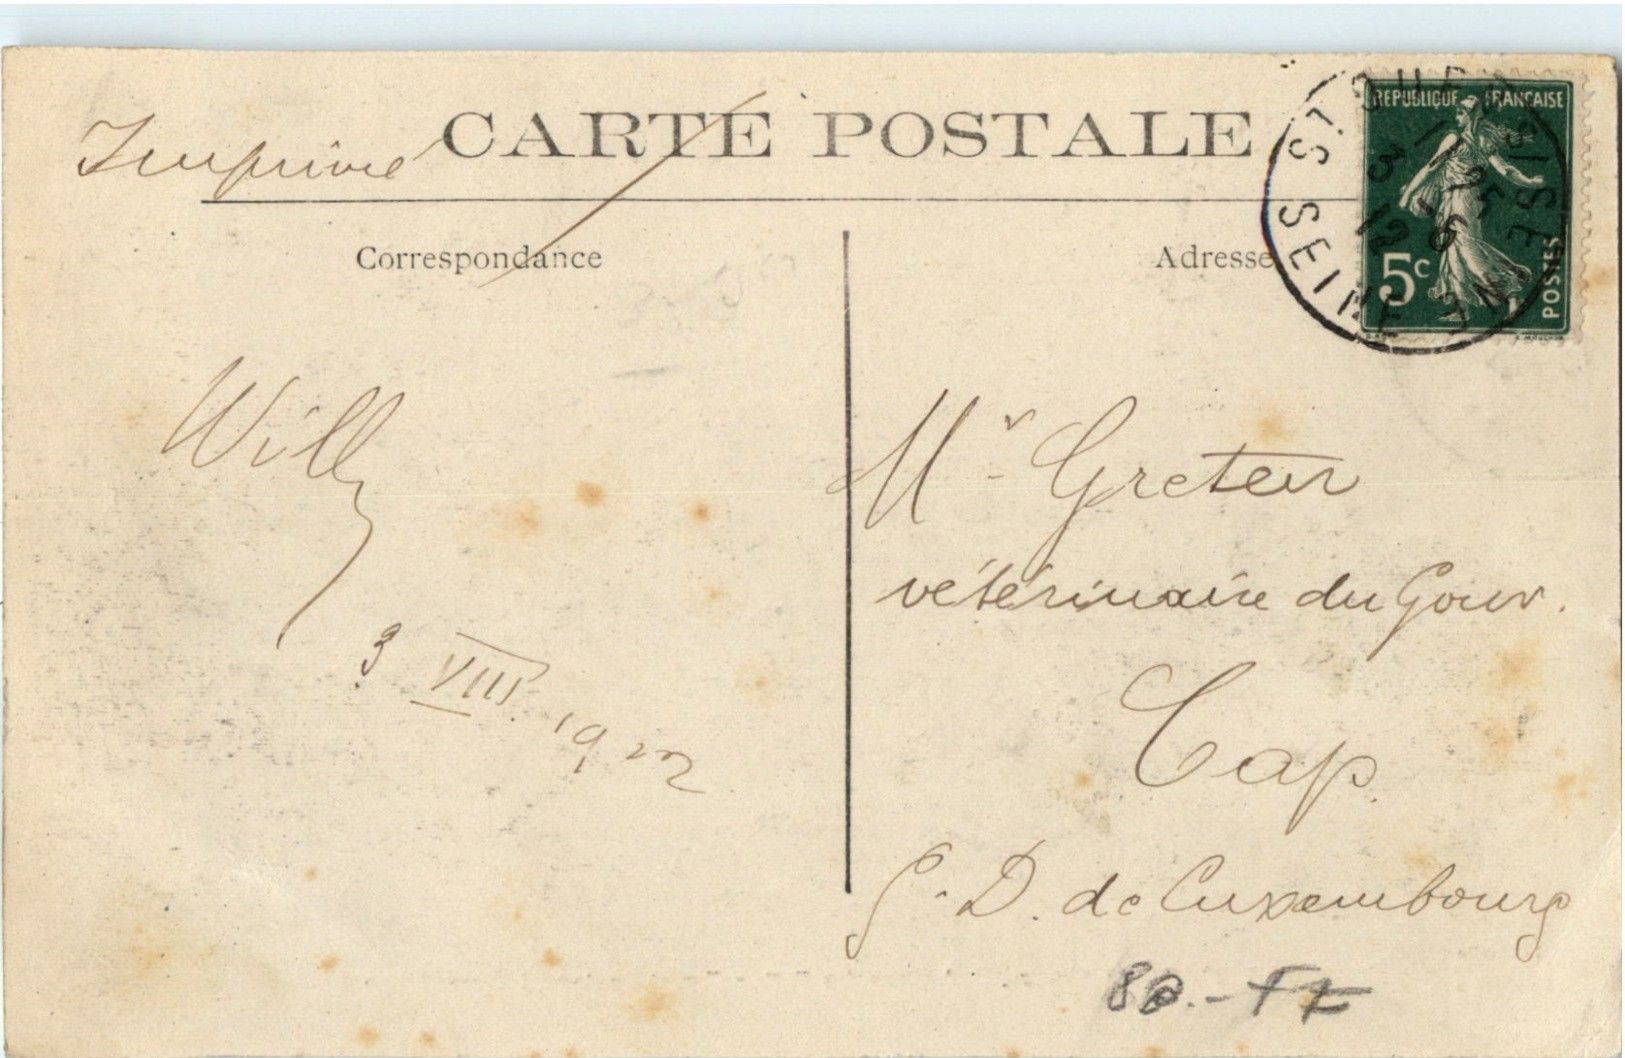 Imprimé
CARTE POSTALE
Correspondance
Adresse
REPUBLIQUE FRANÇAISE
5c
POSTES
ST OUEN
SEINE
11 25
3 - 8
12
Willy
3 VIII. 1912
Mr Greten
vétérinaire du Gouv.
Cap.
G. D. de Luxembourg
80.- FF